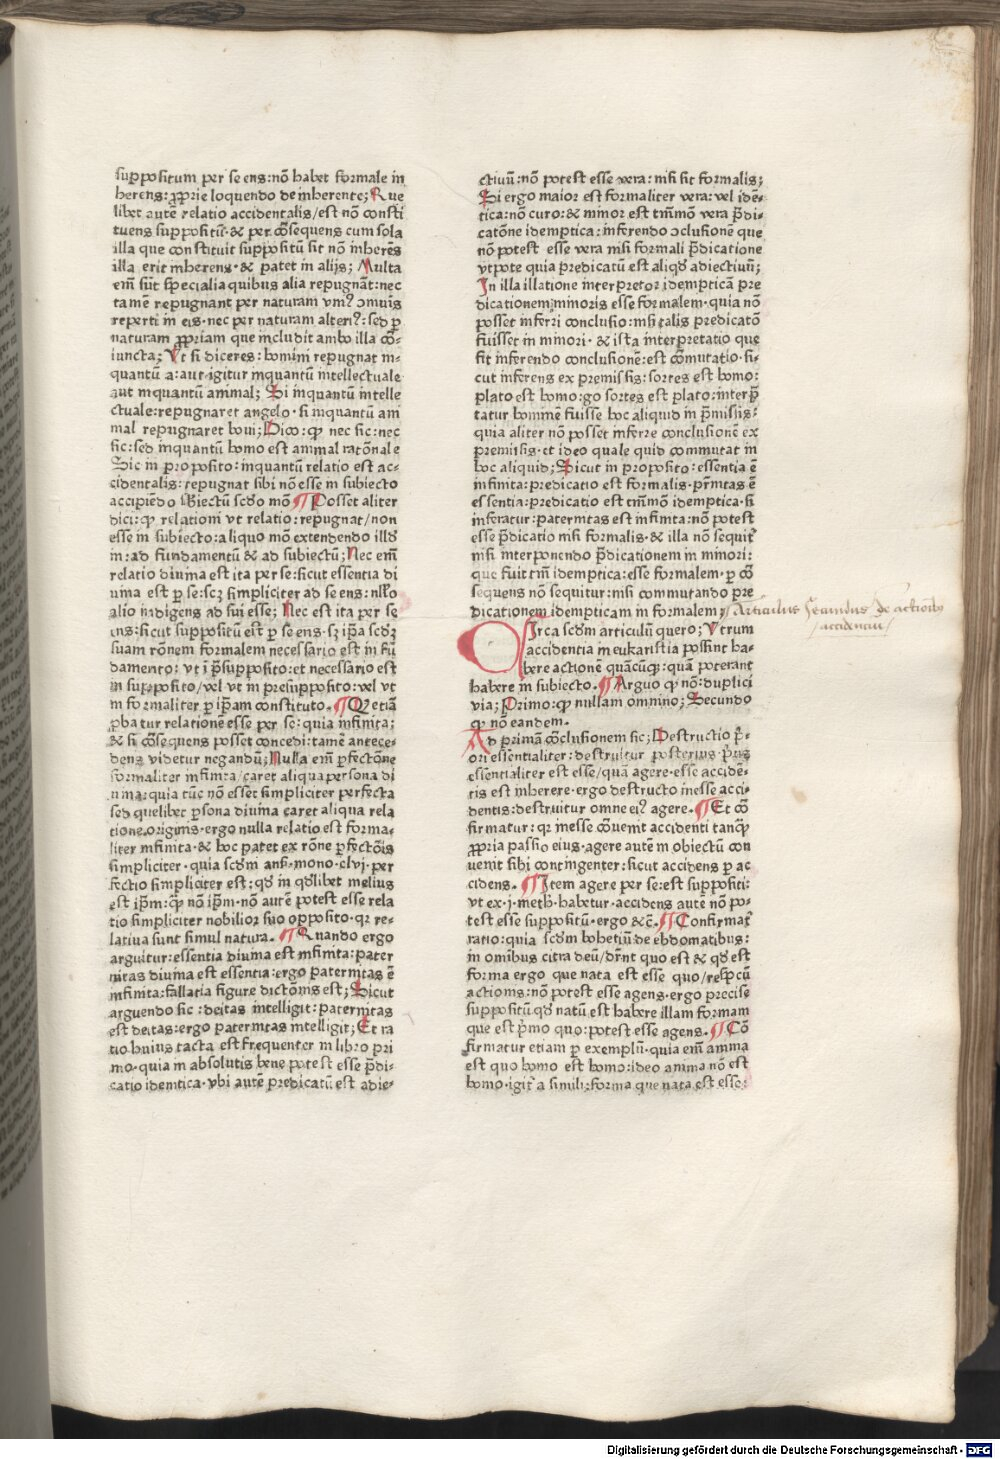 suppositum per se ens: nō habet formale in
herens: ꝓprie loquendo de inherente; Que
libet autē relatio accidentalis/est nō consti
tuens suppositū· & per cōsequens cum sola
illa que constituit suppositū sit nō inherēs
illa erit inherens· & patet in alijs; Multa
em̄ sūt specialia quibus alia repugnāt: nec
tamē repugnant per naturam vniꝰ ōmuīs
reperti in eis· nec per naturam alteriꝰ: sed ꝑ
naturam ꝓpriam que includit ambo illa cō-
iuncta; Vt si diceres: homini repugnat in-
quantū a: aut igitur inquantū intellectuale
aut inquantū animal; Si inquantū intelle
ctuale: repugnaret angelo· si inquantū ani
mal repugnaret boui; Dico: ꝙ nec sic: nec
sic: sed inquantū homo est animal ratōnale
Sic in proposito: inquantū relatio est ac-
cidentalis: repugnat sibi nō esse in subiecto
accipiēdo sbiectū scdo mō ¶ Posset aliter
dici: ꝙ relationi vt relatio: repugnat/non
esse in subiecto: aliquo mō extendendo illd
in: ad fundamentū & ad subiectū; Nec em̄
relatio diuina est ita per se: sicut essentia di
uina est ꝑ se: scz simpliciter ad se ens: nllo
alio indigens ad sui esse; Nec est ita per se
ens: sicut suppositū est ꝑ se ens· sz ip̄a scdz
suam rōnem formalem necessario est in fū
damento: vt i p̄supposito: et necessario est
in supposito/vel vt in presupposito: vel vt
in formaliter ꝑ ip̄am constituto. ¶ Qꝫ etiā
ꝓbatur relationē esse per se: quia infinita;
& si cōsequens posset concedi: tamē antece-
dens videtur negandū; Nulla em̄ ꝑfectōne
formaliter infinita/caret aliqua persona di
uina: quia tūc nō esset simpliciter perfecta
sed quelibet ꝑsona diuina caret aliqua rela
tione originis· ergo nulla relatio est forma-
liter infinita· & hoc patet ex rōne ꝑfectōis
simpliciter· quia scdm ans̄· mono· clvj· per
fectio simpliciter est: qd in qdlibet melius
est ip̄m: qͣ nō ip̄m· nō autē potest esse rela
tio simpliciter nobilior suo opposito· qr re-
latiua sunt simul natura. ¶ Quando ergo
arguitur: essentia diuina est infinita: pater
nitas diuina est essentia: ergo paternitas ē
infinita: fallatia figure dictōnis est; Sicut
arguendo sic: deitas intelligit: paternitas
est deitas: ergo paternitas intelligit; Et ra
tio huius tacta est frequenter in libro pri
mo· quia in absolutis bene potest esse p̄di-
catio idemtica· vbi autē predicatū est adie-
ctiuū: nō potest esse vera: nisi sit formalis;
Si ergo maior est formaliter vera: vel idē-
tica: nō curo: & minor est tm̄mō vera p̄di-
catōne idemptica: inferendo ɔclusionē que
nō potest esse vera nisi formali p̄dicatione
vtpote quia predicatū est aliqd adiectiuū;
In illa illatione interpretor idempticā pre
dicationem minoris esse formalem· quia nō
posset inferri conclusio: nisi talis predicatō
fuisset in minori· & ista interpretatio que
fit inferendo conclusionē: est cōmutatio· si-
cut inferens ex premissis: sortes est homo:
plato est homo: go sortes est plato: interp̄
tatur hominē fuisse hoc aliquid in p̄missis:
quia aliter nō posset inferre conclusionē ex
premissis· et ideo quale quid commutat in
hoc aliquid; Sicut in proposito: essentia ē
infinita: predicatio est formalis· pr̄nitas ē
essentia: predicatio est tm̄mō idemptica· si
inferatur: paternitas est infinita: nō potest
esse p̄dicatio nisi formalis· & illa nō sequit̄
nisi interponendo p̄dicationem in minori:
que fuit tm̄ idemptica: esse formalem· ꝑ cō
sequens nō sequitur: nisi commutando pre
dicationem idempticam in formalem;
Articulus Secundus de actionibꝫ
accidenciū
Circa scdm articulū quero; Vtrum
accidentia in eukaristia possint ha-
bere actionē quācūqꝫ: quā poterant
habere in subiecto. ¶ Arguo ꝙ nō: duplici
via; Primo: ꝙ nullam omnino; Secundo
ꝙ nō eandem.
Ad primā cōclusionem sic; Destructo p̄-
ori essentialiter: destruitur posterius· p̄us
essentialiter est esse/quā agere· esse acciden-
tis est inherere· ergo destructo inesse acci-
dentis: destruitur omne eiꝰ agere. ¶ Et cō
firmatur: qr inesse cōuenit accidenti tanqͣ
ꝓpria passio eius· agere autē in obiectū con
uenit sibi contingenter: sicut accidens ꝑ ac
cidens. ¶ Item agere per se: est suppositi:
vt ex·j·meth· habetur· accidens autē nō po-
test esse suppositū· ergo &c̄. ¶ Confirmat̄
ratio: quia scdm bohetiū de ebdomatibus:
in omnibus citra deū/dr̄nt quo est & qd est
forma ergo que nata est esse quo/respcū
actionis: nō potest esse agens· ergo precise
suppositū qd natū est habere illam formam
que est p̄mo quo: potest esse agens. ¶ Cō
firmatur etiam ꝑ exemplū· quia em̄ anima
est quo homo est homo: ideo anima nō est
homo· igit̄ a simili: forma que nata est esse:
Digitalisierung gefördert durch die Deutsche Forschungsgemeinschaft - DFG